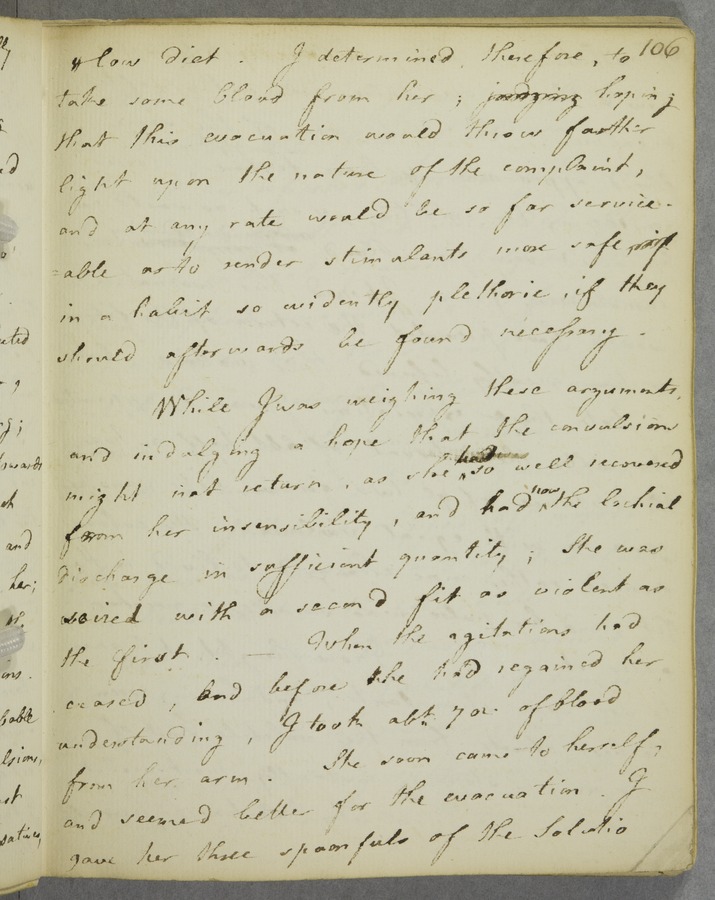 106
slow diet. I determined, therefore, to
take some blood from her; judging hoping
that this evacuation would throw farther
light upon the nature of the complaint,
and at any rate would be so far service-
=able as to render stimulants more safe
in a habit so evidently plethoric, if they
should afterwards be found necessary.
While I was weighing these arguments,
and indulging a hope that the convulsions
might not return, as she had so well recovered
from her insensibility, and had now the lochial
discharge in sufficient quantity; She was
seized with a second fit as violent as
the first. — When the agitations had
ceased, and before she had regained her
understanding, I took abt. 7 oz. of blood
from her arm. She soon came to herself,
and seemed better for the evacuation. I
gave her three spoonfuls of the Solutio
ully
d
ed
ated
g;
swards
at
and
her;
or
ons.
bable
lsions,
st
satives